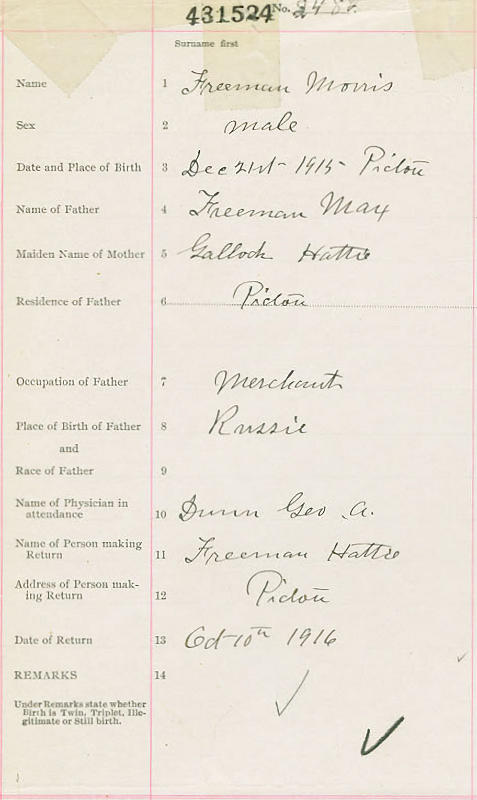 431524 No. 2482
Surname first
Name 1 Freeman Morris
Sex 2 male
Date and Place of Birth 3 Dec 21st 1915 Picton
Name of Father 4 Freeman Max
Maiden Name of Mother 5 Gallock Hattie
Residence of Father 6 Picton
Occupation of Father 7 Merchant
Place of Birth of Father 8 Russie
and
Race of Father 9
Name of Physician in
attendance 10 Dunn Geo. A.
Name of Person making
Return 11 Freeman Hattie
Address of Person mak-
ing Return 12 Picton
Date of Return 13 Oct 10th 1916
REMARKS 14
Under Remarks state whether
Birth is Twin, Triplet, Ille-
gitimate or Still birth.